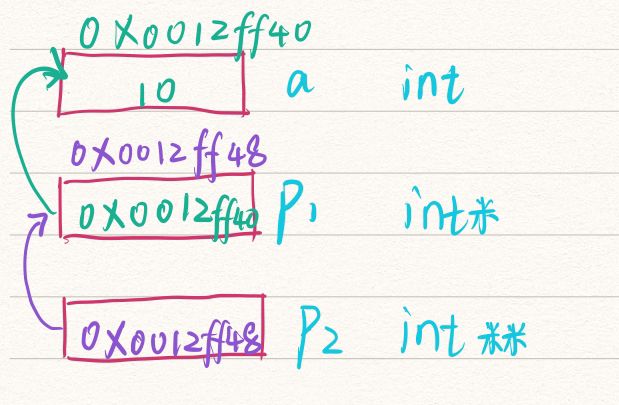 0X0012ff40
10 a int
0X0012ff48
0X0012ff40 P1 int*
0X0012ff48 P2 int**